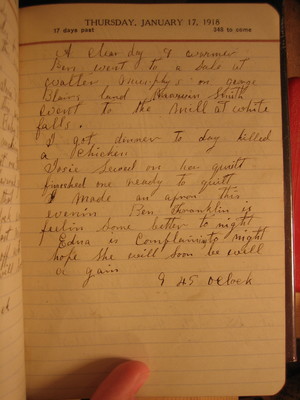 THURSDAY, JANUARY 17, 1918
17 days past 348 to come
A clear day & warmer
Ben went to a sale at
walter Murphy's on george
Blairs land
went to the mill at white
falls.
I got dinner to day killed
a chicken
Josie sewed on her quilt
finished one ready to quilt
I made an apron this
evenin Ben Franklin is
feelin some better to night
Edna is Complaining to night
hope she will soon be well
a gain
9 45 oClock